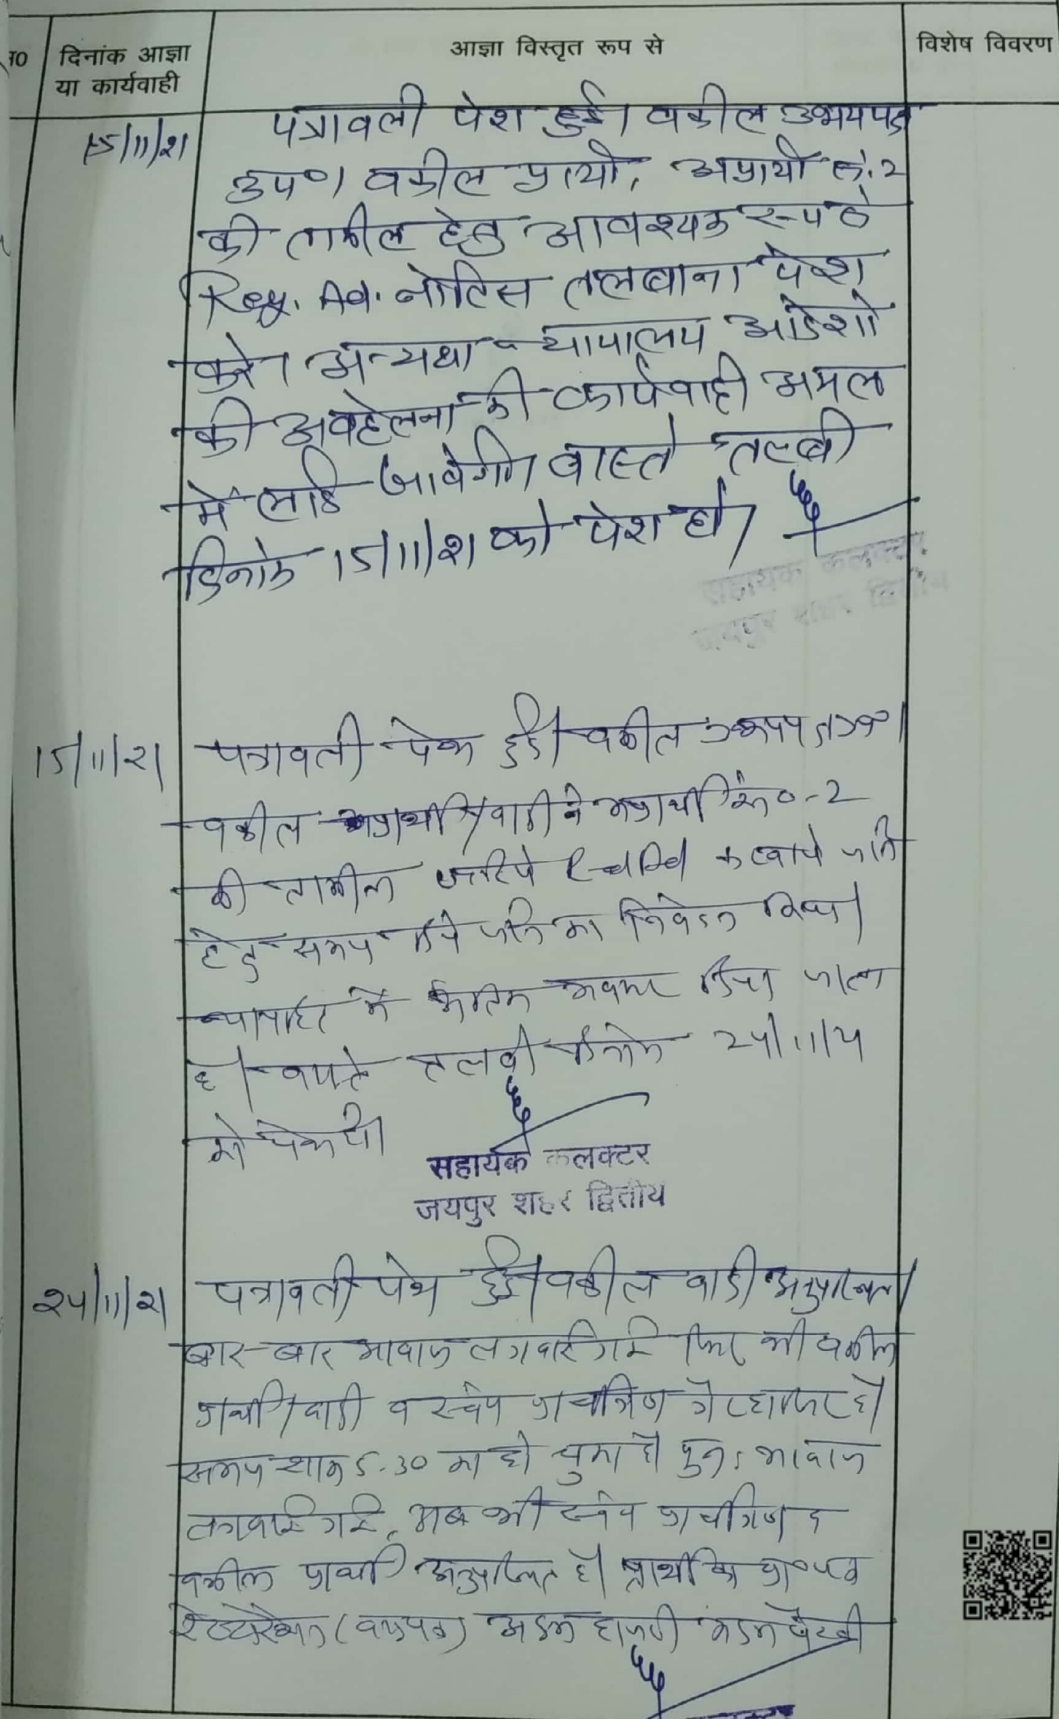 दिनांक आज्ञा
या कार्यवाही
आज्ञा विस्तृत रूप से
विशेष विवरण
15/11/21
पत्रावली पेश हुई। वकील उभयपक्ष
उप०। वकील प्रार्थी, अप्रार्थी सं. 2
की तामील हेतु आवश्यक रूप से
Reg. Ad. नोटिस तलबाना पेश
करे। अन्यथा न्यायालय आदेशो
की अवहेलना की कार्यवाही अमल
में लाई जावेगी। वास्ते तलबी
दिनांक 15/11/21 को पेश हो।
सहायक कलक्टर
जयपुर शहर द्वितीय
15/11/21
पत्रावली पेश हुई। वकील
वकील प्रार्थी/वादी ने अप्रार्थी सं०-2
की तामील जरिये करवाये जाने
हेतु समय दिये जाने का निवेदन किया।
न्यायहित में अंतिम अवसर दिया जाता
है। वास्ते तलबी दिनांक 24/11/21
को पेश हो।
सहायक कलक्टर
जयपुर शहर द्वितीय
24/11/21
पत्रावली पेश हुई। वकील वादी अनुपस्थित।
बार-बार आवाज लगवाई गई फिर भी वकील
प्रार्थी/वादी व स्वंय प्रार्थीगण गैरहाजिर है।
समय शाम 5.30 का हो चुका है पुनः आवाज
लगवाई गई, अब भी स्वंय प्रार्थीगण व
वकील प्रार्थी अनुपस्थित है। प्रार्थी का प्रा०पत्र
रेस्टोरेशन अदम हाजरी अदम पैरवी